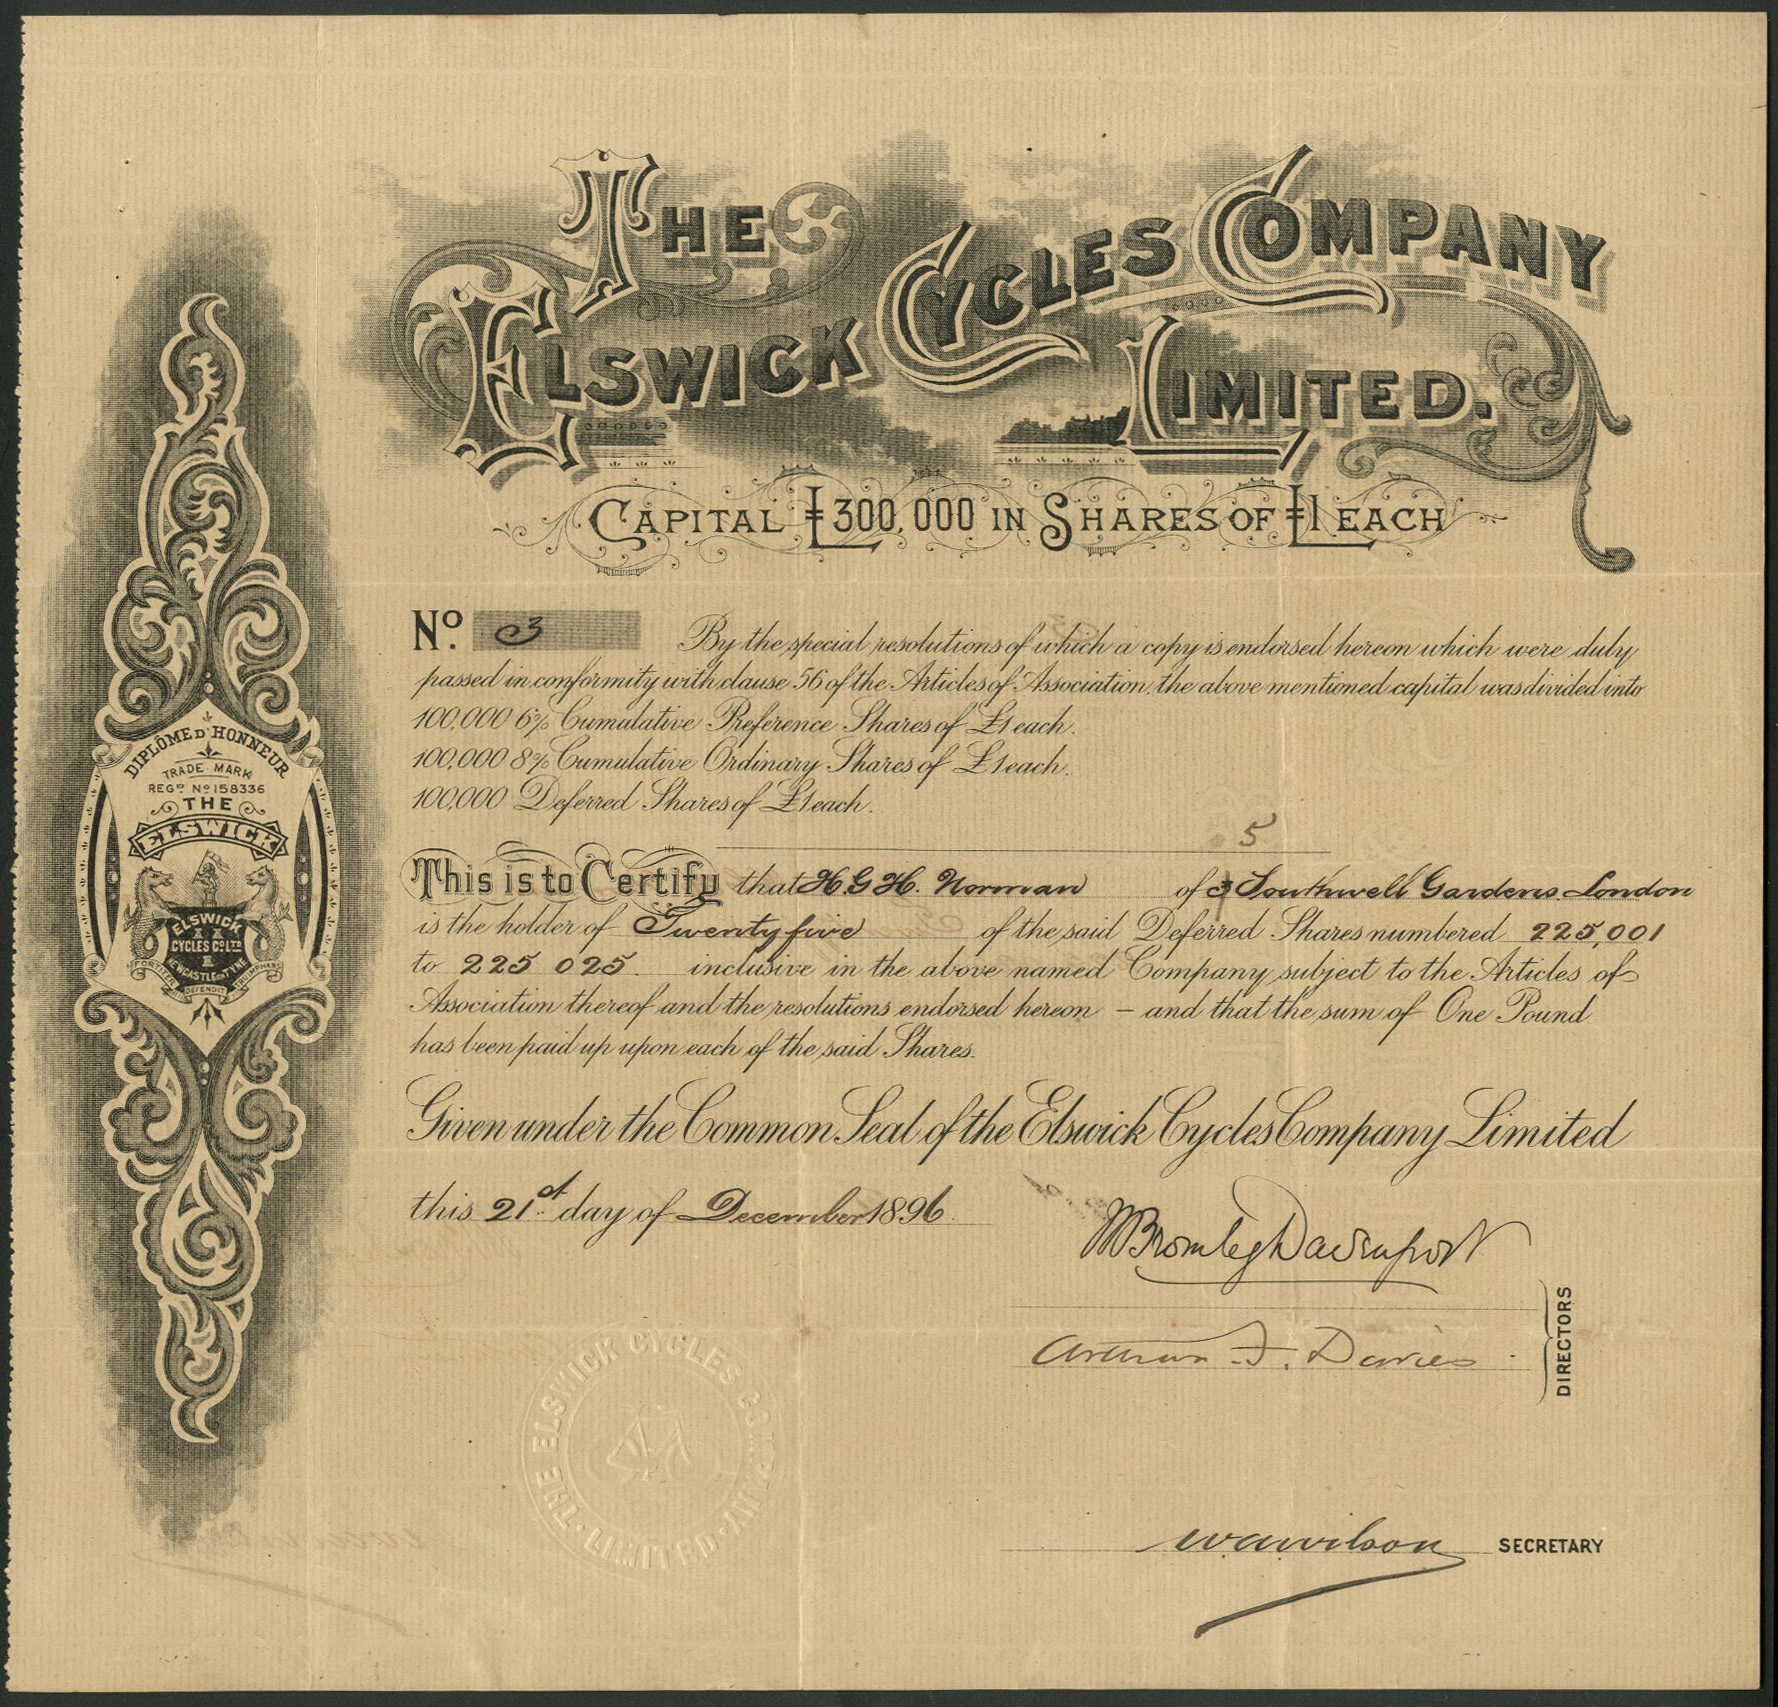 THE
ELSWICK CYCLES COMPANY
LIMITED.
CAPITAL £300,000 IN SHARES OF £1 EACH
No. 3
By the special resolutions of which a copy is endorsed hereon which were duly
passed in conformity with clause 56 of the Articles of Association, the above mentioned capital was divided into
100,000 6% Cumulative Preference Shares of £1 each.
100,000 8% Cumulative Ordinary Shares of £1 each.
100,000 Deferred Shares of £1 each.
5
This is to Certify that H. G. H. Norman of 3 Southwell Gardens London
is the holder of Twenty five of the said Deferred Shares numbered 225,001
to 225 025. inclusive in the above named Company subject to the Articles of
Association thereof and the resolutions endorsed hereon — and that the sum of One Pound
has been paid up upon each of the said Shares.
Given under the Common Seal of the Elswick Cycles Company Limited
this 21st day of December 1896.
W Bromley Davenport
Arthur F. Davies
DIRECTORS
W. A. Wilson SECRETARY
DIPLÔME D'HONNEUR
TRADE MARK
REGD. No 158336
THE
ELSWICK
ELSWICK
CYCLES CO. LTD
NEWCASTLE ON TYNE
FORTITER DEFENDIT TRIUMPHANS
THE ELSWICK CYCLES COMPANY LIMITED